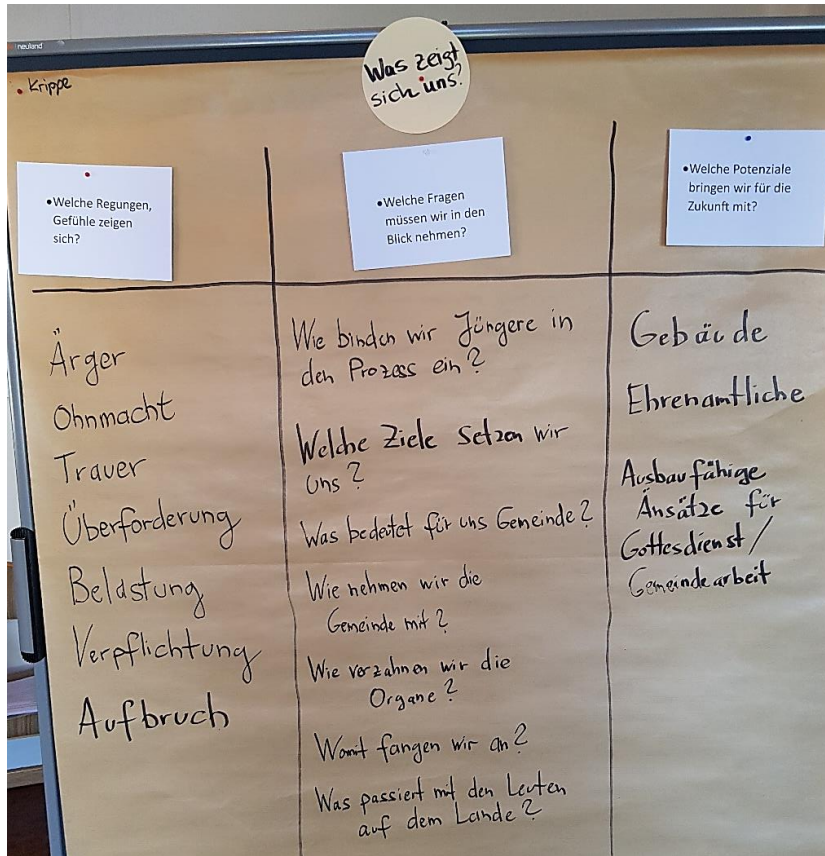 neuland
• Krippe
Was zeigt
sich uns?
•Welche Regungen,
Gefühle zeigen
sich?
Ärger
Ohnmacht
Trauer
Überforderung
Belastung
Verpflichtung
Aufbruch
•Welche Fragen
müssen wir in den
Blick nehmen?
Wie binden wir Jüngere in
den Prozess ein?
Welche Ziele setzen wir
uns?
Was bedeutet für uns Gemeinde?
Wie nehmen wir die
Gemeinde mit?
Wie verzahnen wir die
Organe?
Womit fangen wir an?
Was passiert mit den Leuten
auf dem Lande?
•Welche Potenziale
bringen wir für die
Zukunft mit?
Gebäude
Ehrenamtliche
Ausbaufähige
Ansätze für
Gottesdienst/
Gemeindearbeit